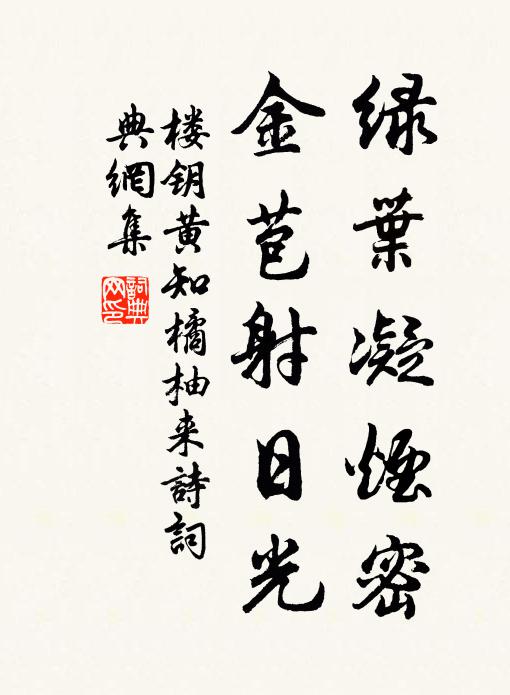 绿葉凝煙密
金苞射日光
楼钥黄知橘柚来詩詞
典網集
詞典網印